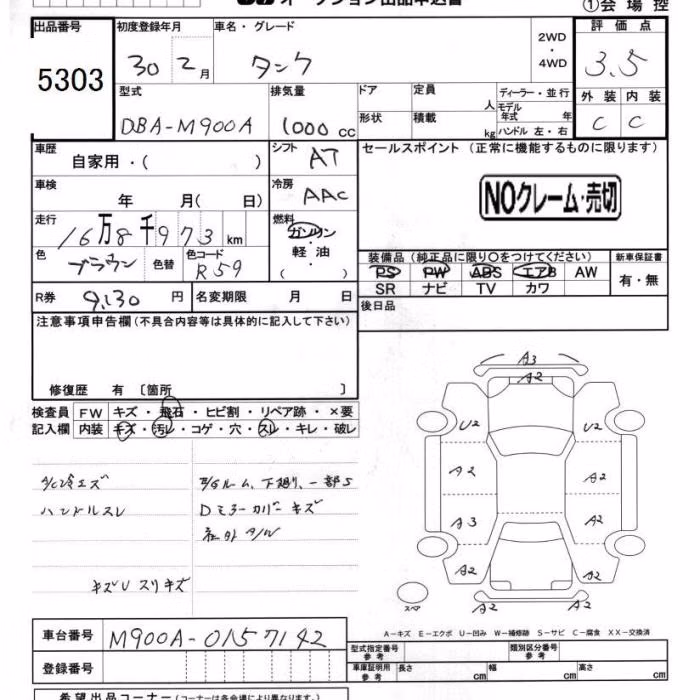 オークション出品申込書
①会場控
出品番号
5303
初度登録年月
30 2月
車名・グレード
タンク
2WD
・
4WD
評価点
3.5
外装 内装
C C
型式
DBA-M900A
排気量
1000 cc
ドア
形状
定員
人
積載
kg
ディーラー・並行
モデル年式 年
ハンドル 左・右
車歴
自家用・( )
シフト
AT
セールスポイント (正常に機能するものに限ります)
NOクレーム・売切
車検
年 月( 日)
冷房
AAC
走行
16万8千973 km
燃料
ガソリン
軽油
( )
色
ブラウン
色替
色コード
R59
装備品 (純正品に限り○をつけてください)
PS PW ABS エアB AW
SR ナビ TV カワ
新車保証書
有・無
R券
9,130 円
名変期限 月 日
後日品
注意事項申告欄 (不具合内容等は具体的に記入して下さい)
修復歴 有 〔箇所 〕
検査員記入欄
FW キズ・飛石・ヒビ割・リペア跡・×要
内装 キズ・汚レ・コゲ・穴・スレ・キレ・破レ
A/C冷エズ
ハンドルスレ
キズU スリキズ
下廻り、一部S
Dミラーカバーキズ
社外A/W
A3
A2
U2 U2
A2 A2
A3 A2
A2 A2
A2 A2
スペア
A-キズ E-エクボ U-凹み W-補修跡 S-サビ C-腐食 XX-交換済
車台番号
M900A-0157142
登録番号
型式指定番号
参考
類別区分番号
参考
車庫証明用
参考
長さ cm
幅 cm
高さ cm
希望出品コーナー (コーナーは各会場により異なります。)